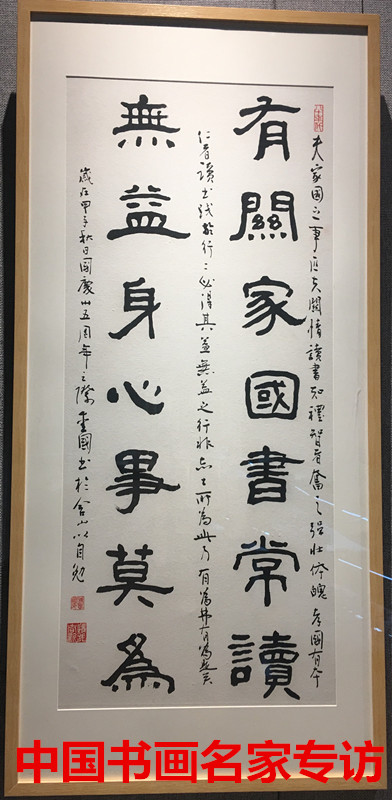 有關家國書常讀
無益身心事莫為
夫家國之事匹夫關情讀書知禮智者奮之强壯體魄者國有
仁者讀書
必得其益無益之行非
所為此乃有為
歲在甲子秋日國慶卅五周年之際重國書於含山以自勉
中国书画名家专访